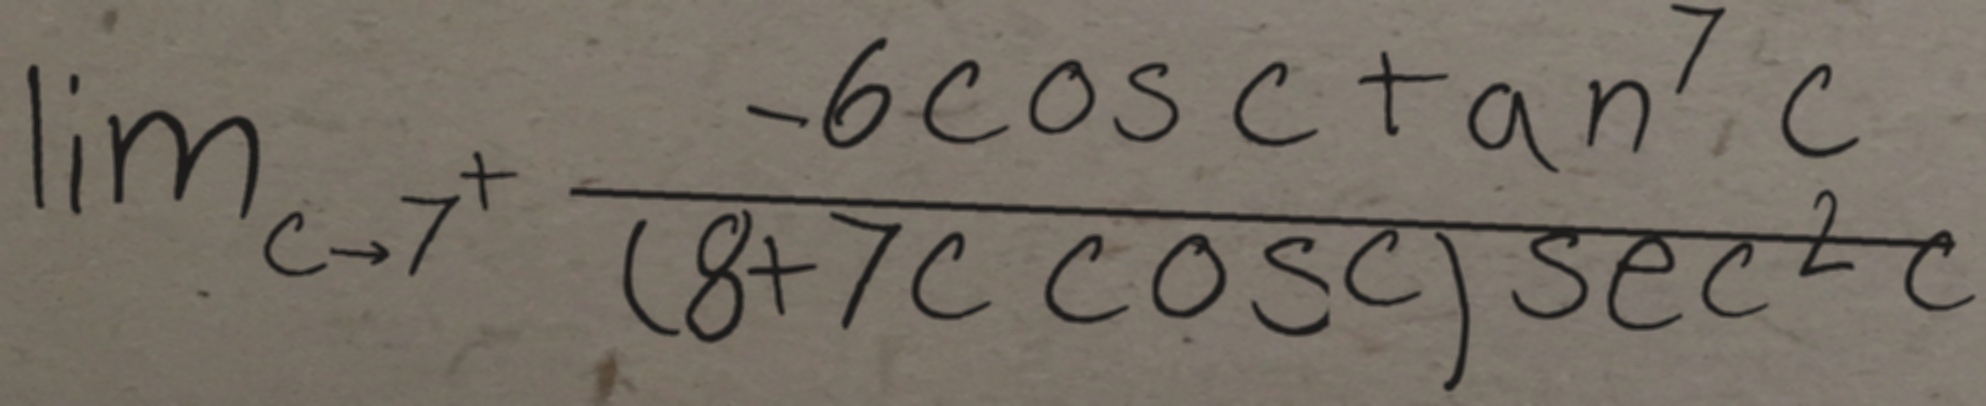 \lim_{c \to 7^+} \frac{-6 \cos c \tan^7 c}{(8 + 7c \cos c) \sec^2 c}